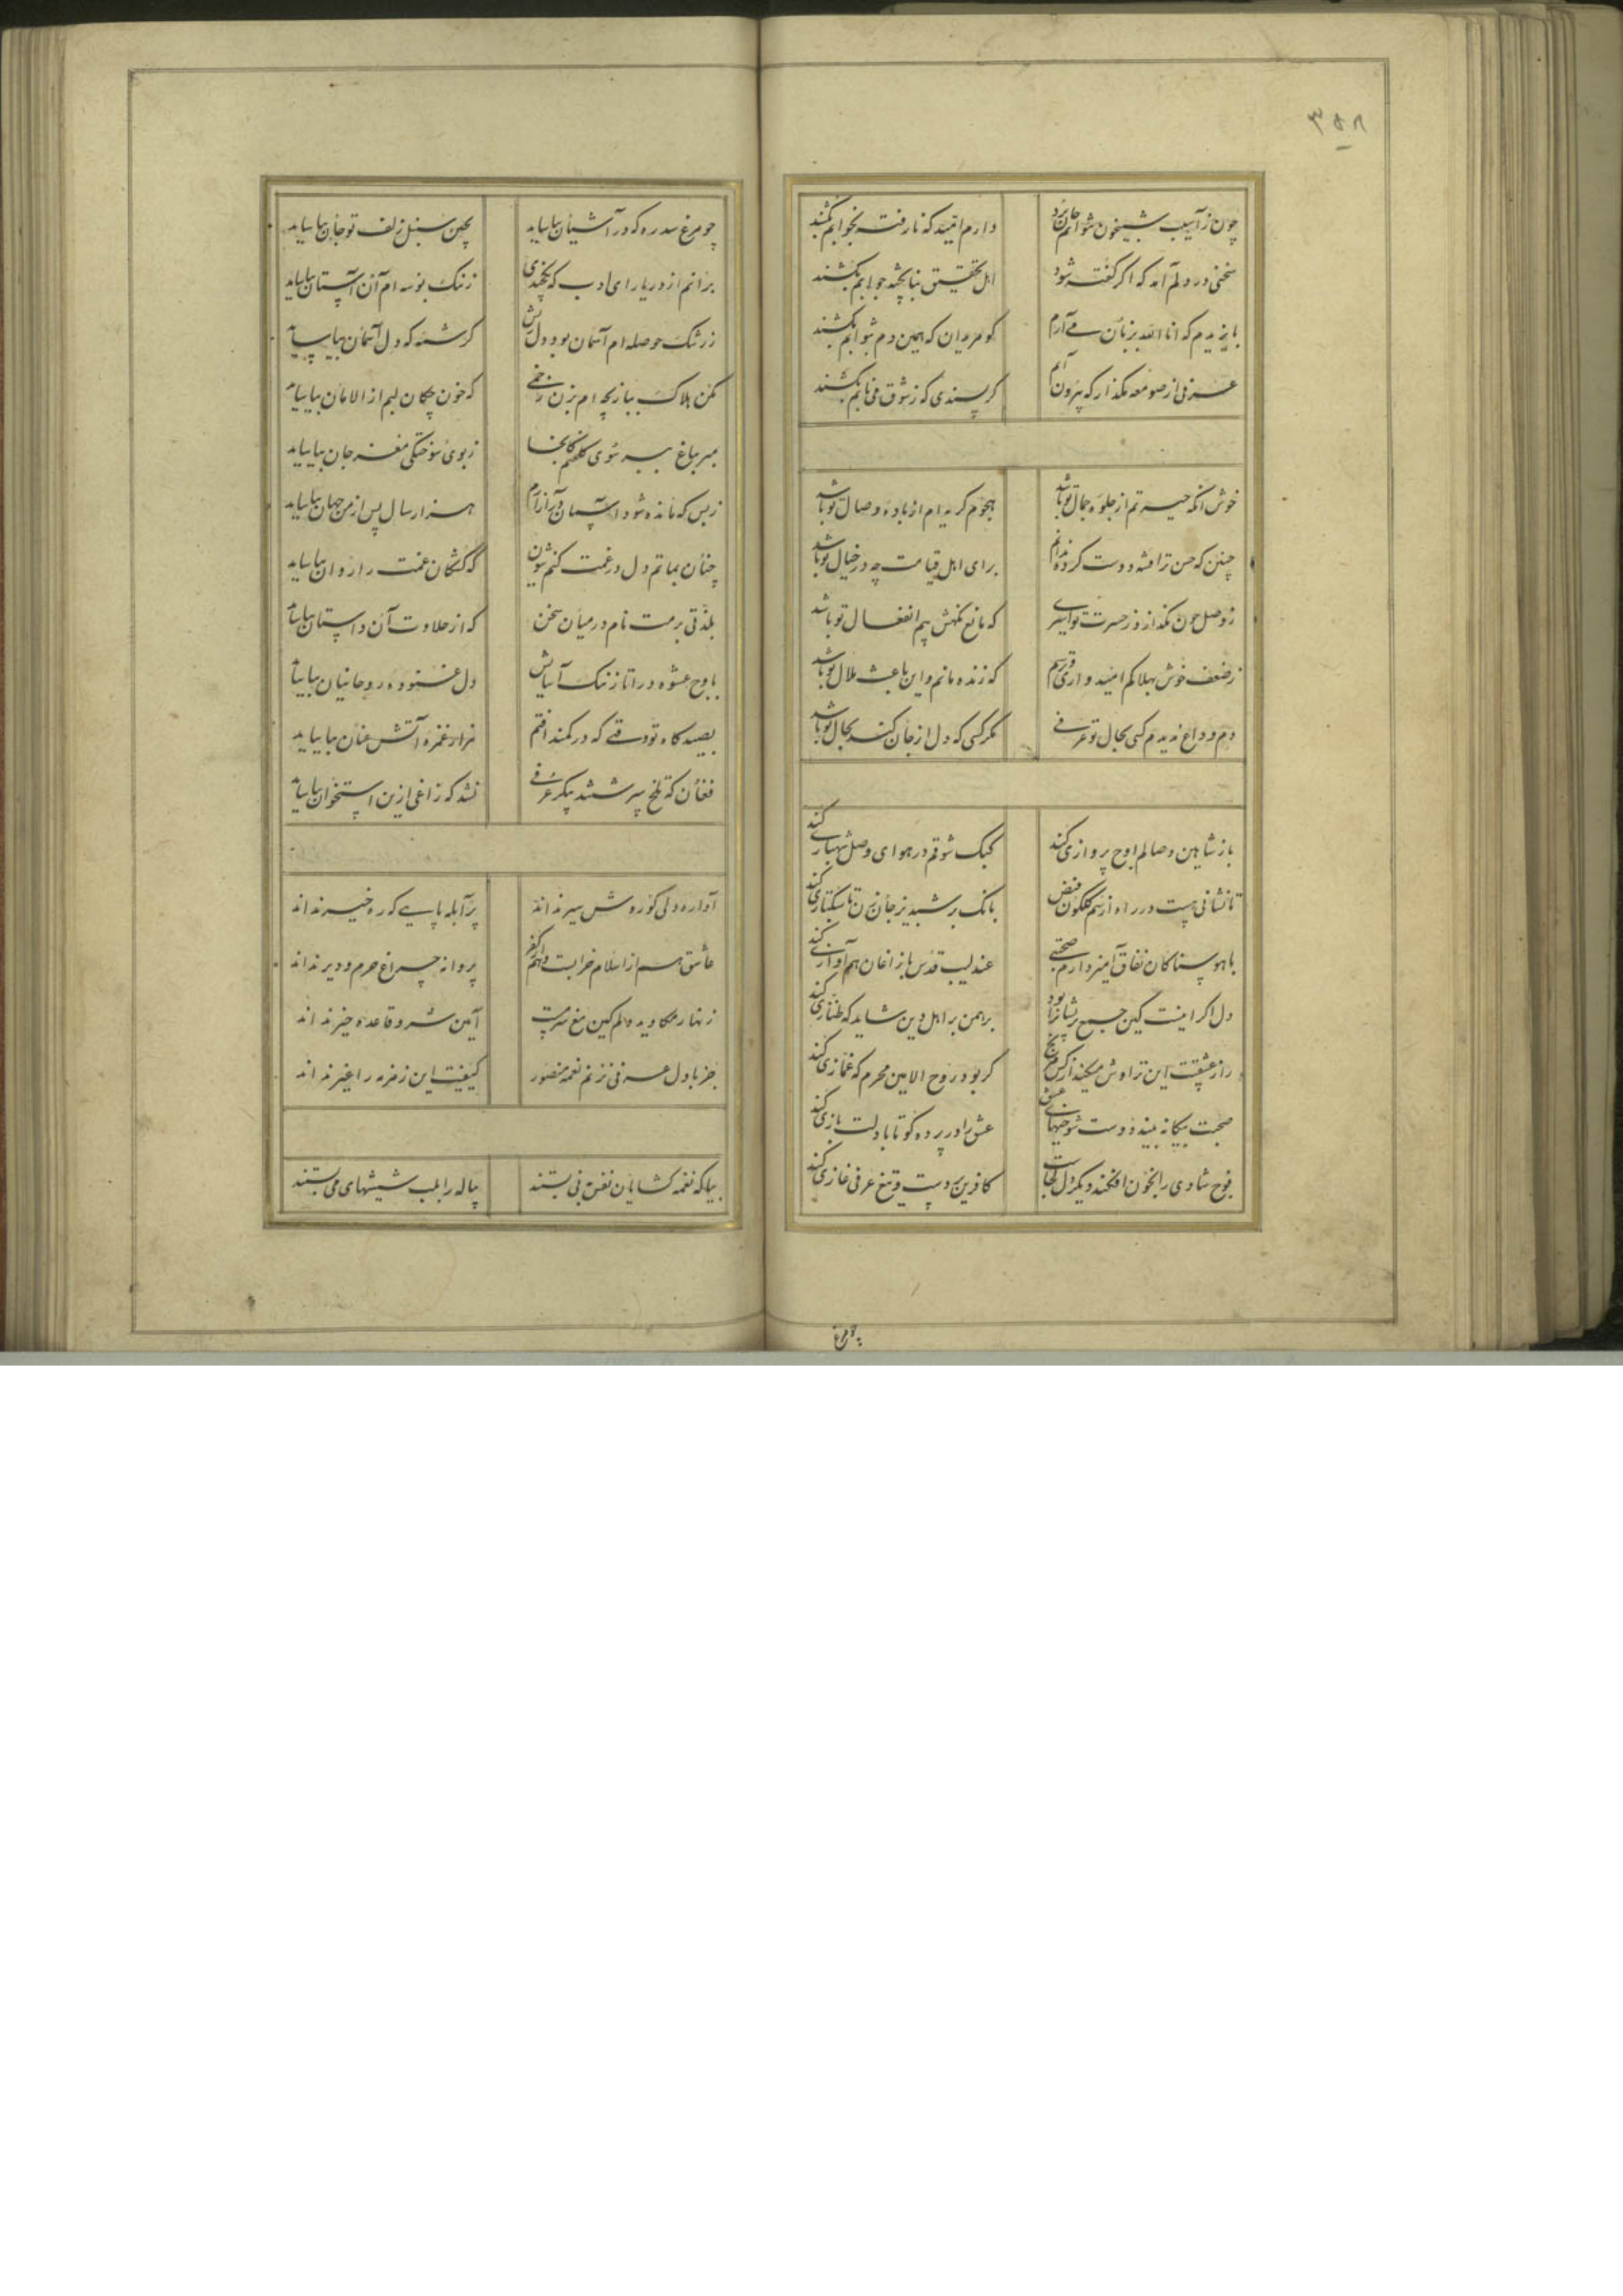 ۳۵۸
چون ز آسیب شبیخون شوانم جان برد دارم امید که نارفته بخوابم بکشند
سخنی در دلم آمد که اگر گفته شود اهل تحقیق بنا بخشد جوابم بکشند
بایزیدم که انا الله بزبان می آرم کو مریدان که همین دم بثوابم بکشند
عرفی از صومعه مگذار که بیرون آیم گر پسندی که ز شوق می نابم بکشند
خوش آنکه حیرتم از جلوه جمال تو باشد هجوم گریه ام از باده وصال تو باشد
چنین که حسن ترا فتنه دوست کرده ندانم برای اهل قیامت چه در خیال تو باشد
ز وصل چون گذارد ز حسرت تو اسیری که مانع نگهش بیم انفعال تو باشد
ز ضعف خوش بهلاکم امید واری و ترسم که زنده مانم و این باعث ملال تو باشد
دم وداع ندیدم کسی بحال تو عرفی مگر کسی که دل از جان کند بحال تو باشد
باز شاهین وصالم اوج پروازی کند کبک شوقم در هوای وصل شهبازی کند
تا نشانی هست در راه از سم گلگون فیض بانگ بر شبدیز جان زن تا سبکتازی کند
با هوسناکان نفاق آمیز دارم صحبتی عندلیب قدس با زاغان هم آوازی کند
دل اگر اینست کین جمع پریشانرا بود برهمن بر اهل دین شاید که طنازی کند
راز عشقت این تراوش میکند از کس مرنج گر بود روح الامین محرم که غمازی کند
صحبت بیگانه بیند دوست شوخیهای عشق عشق را در پرده گو تا با دلت بازی کند
فوج شادی را بخون افکند دیگر دل کجاست کافرین بر دست و تیغ عرفی غازی کند
چو مرغ
چو مرغ سدره که در آشیان بیاساید بچین سنبل زلف تو جان بیاساید
برانم از در یا رای ادب که نخندی ز ننگ بوسه ام آن آستان بیاساید
ز رشک حوصله ام آسمان بود دل ریش گرسنه که دل آسمان بیاساید
مکن هلاک ببازیچه ام بزن زخمی که خون چکان لبم از الامان بیاساید
مبر بباغ ببر سوی گلخنم کانجا ز بوی سوختگی مغز جان بیاساید
ز بس که مانده شود آسمان در آزارم هزار سال پس از من جهان بیاساید
چنان بماتم دل در غمت کنم شیون که کشتگان غمت را روان بیاساید
بلذتی برمت نام در میان سخن که از حلاوت آن داستان بیاساید
باوج عشوه درآ تا ز ننگ آسایش دل غنوده روحانیان بیاساید
بصیدگاه تو وقتی که در کمند افتم هزار غمزه آتش عنان بیاساید
فغان که تلخ سرشتند پیکر عرفی نشد که زاغی ازین استخوان بیاساید
آواره دلی کو روش سیر نداند پر آبله پایی که ره خیر نداند
عاشق هم از اسلام خرابست و هم از کفر پروانه چراغ حرم و دیر نداند
زنهار مکاوید دلم کین مغ سرمست آیین شر و قاعده خیر نداند
جز با دل عرفی نزنم نغمه منصور کیفیت این زمزمه را غیر نداند
بیا که نغمه گشایان نفس بنی بستند پیاله را بلب شیشهای می بستند